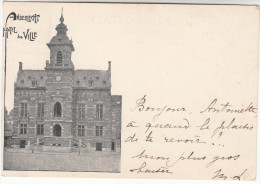 Anderlecht
Hôtel de Ville
Bonjour, Antoinette,
à quand le plaisir
de te revoir...
mon plus gros
baiser
M. L.